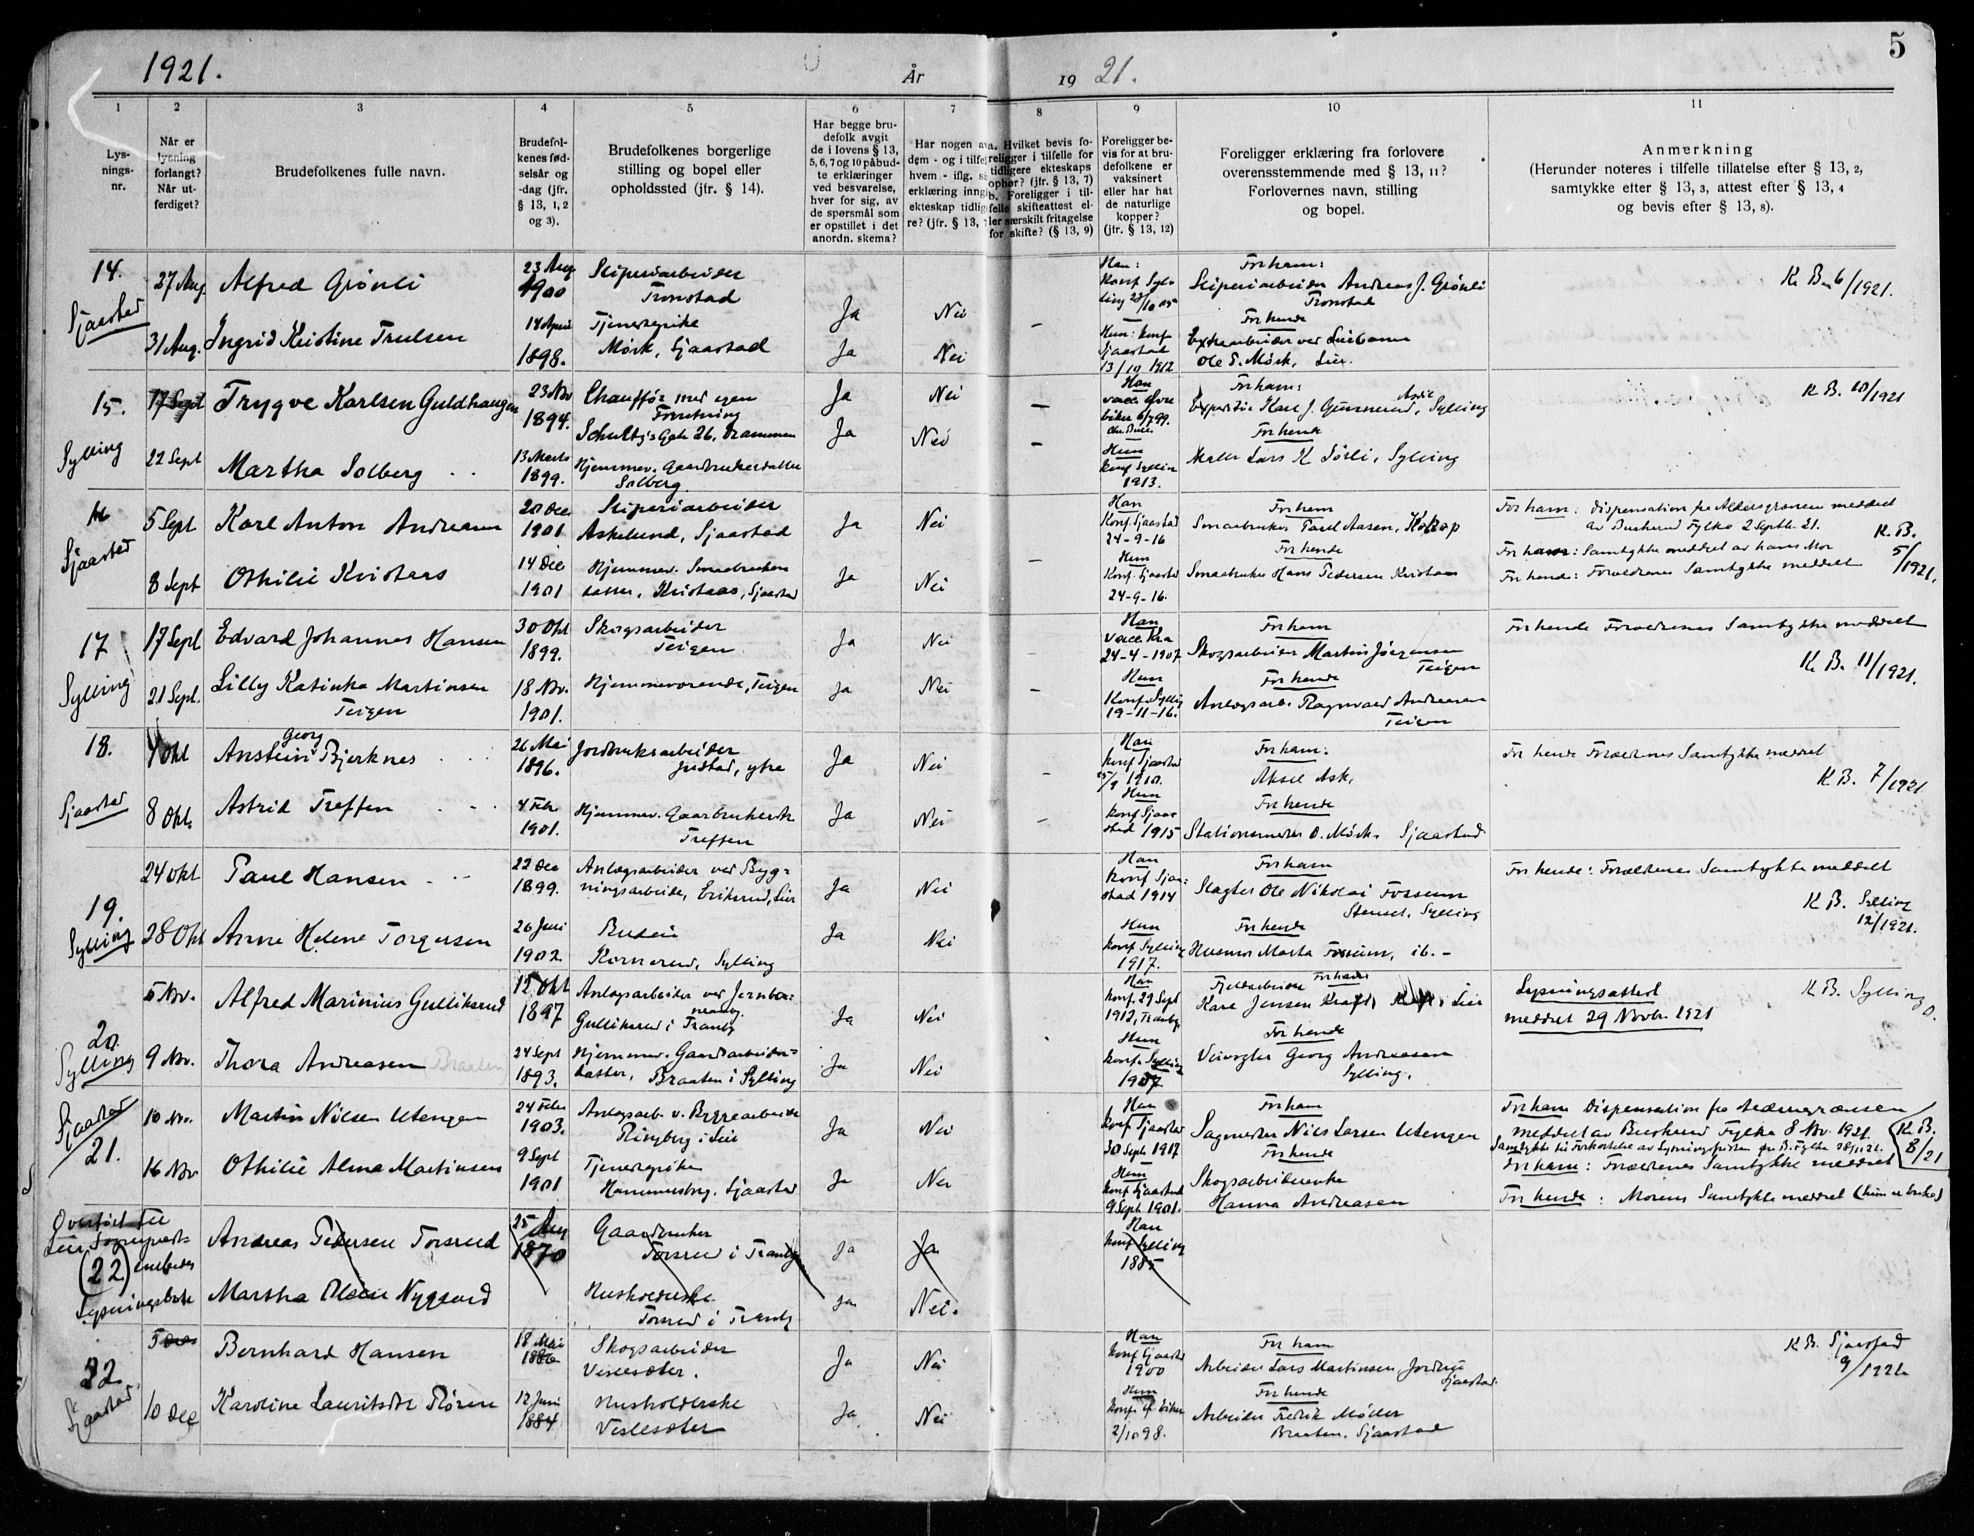 1921.
År
19 21.
5
1 2 3 4 5 6 7 8 9 10 11
Lys-
nings-
nr.
Når er
lysning
forlangt?
Når ut-
ferdiget?
Brudefolkenes fulle navn.
Brudefol-
kenes fød-
selsår og
-dag (jfr.
§ 13, 1, 2
og 3).
Brudefolkenes borgerlige
stilling og bopel eller
opholdssted (jfr. § 14).
Har begge bru-
defolk avgit
de i lovens § 13,
5, 6, 7 og 10 påbud-
te erklæringer
ved besvarelse,
hver for sig, av
de spørsmål som
er opstillet i det
anordn. skema?
Har nogen a
dem - og i tilfel
hvem - iflg. s
erklæring inng
ekteskap tidlig
re? (jfr. § 13,
a. Hvilket bevis fo-
religger i tilfelle for
tidligere ekteskaps
ophør? (jfr. § 13, 7)
b. Foreligger i til-
felle skifteattest el-
ler særskilt fritagelse
for skifte? (§ 13, 9)
Foreligger be-
vis for at bru-
defolkene er
vaksinert
eller har hat
de naturlige
kopper?
(jfr. § 13, 12)
Foreligger erklæring fra forlovere
overensstemmende med § 13, 11?
Forlovernes navn, stilling
og bopel.
Anmerkning
(Herunder noteres i tilfelle tillatelse efter § 13, 2,
samtykke efter § 13, 3, attest efter § 13, 4
og bevis efter § 13, 8).
14.
Sjaastad
27 Aug. Alfred Grönli
23 Aug.
1900
Sliperiarbeider
Tronstad
Ja Nei
Han:
Konf. Syl-
ling
For ham:
Sliperiarbeider Andreas J. Grönli
Tronstad
K. B. 6/1921.
31 Aug. Ingrid Kristine Trulsen
14 April
1898.
Tjenestepike
Mörk, Sjaastad
Ja Nei
Hun: Konf
Sjaastad
13/10 1912
For hende
Ole Mörk, Lier.
15.
Sylling
17 Sept Trygve Karlsen Guldhaugen
23 Nov
1894.
Chaufför med egen
Forretning
Schultz's Gate 26, Drammen
Ja Nei
Han
vacc. Övre
Eiker
For ham:
Karl J. Gunnerud, Sylling
K. B. 10/1921
22 Sept Martha Solberg
13 Marts
1899.
Hjemmev. Gaardbrukerdatter
Solberg.
Ja Nei
Hun
konf Sylling
1913.
For hende
Maler Lars K Sörli, Sylling
16
Sjaastad
5 Sept Karl Anton Andreasen
20 Dec
1901
Sliperiarbeider
Askelund, Sjaastad
Ja Nei
Han
Konf. Sjaastad
24-9-16
For ham
Smaabruker Paul Aasen,
For ham: Dispensation fra Aldersgrænsen meddelt
av Buskerud Fylke 2 Septb. 21.
For ham: Samtykke meddelt av hans Mor
K. B.
5/1921.
8 Sept Othilie Kvistaas
14 Dec
1901
Hjemmev. Smaabruker
datter, Kvistaas, Sjaastad
Ja Nei
Hun
Konf. Sjaastad
24-9-16.
For hende
Smaabruker Hans Pedersen Kvistaas
For hende: Forældrenes Samtykke meddelt
17
Sylling
17 Sept Edvard Johannes Hansen
30 Okt
1899.
Skogsarbeider
Teigen
Ja Nei
Han
Vacc. Kra
24-4-1907
For ham
Skogsarbeider Martin Jörgensen
Teigen
For hende Forældrenes Samtykke meddelt
K. B. 11/1921.
21 Sept. Lilly Katinka Martinsen
Teigen
18 Nov.
1901.
Hjemmeværende, Teigen
Ja Nei
Hun
Konf. Sylling
19-11-16.
For hende
Anlægsarb. Ragnvald Andreasen
Teigen
18.
Sjaastad
4 Okt Anstein Georg Bjerknes
26 Mai
1896.
Jordbruksarbeider
Justad, ytre
Ja Nei
Han
konf Sjaastad
25/9 1910.
For ham:
Aksel Ask,
For hende Forældrenes Samtykke meddelt
K. B. 7/1921
8 Okt. Astrid Treffen
4 Febr
1901.
Hjemmev. Gaardbrukerdtr
Treffen
Ja Nei
Hun
konf Sjaa-
stad 1915
For hende
Stationsmester O. Mörk, Sjaastad
19.
Sylling
24 Okt Paul Hansen
22 Dec
1899.
Anlægsarbeider ved Byg-
ningsarbeide, Eriksrud, Lier
Ja Nei
Han
konf Sjaa-
stad 1914
For ham
Slagter Ole Nikolai Fossum
Stenset, Sylling
For hende: Forældrenes Samtykke meddelt
K. B. Sylling
12/1921.
28 Okt Anne Helene Torgersen
26 Juni
1902
Budeie
Kornerud, Sylling
Ja Nei
Hun
konf Sylling
1917.
For hende
Husmor Marta Fossum, ib. -
20.
Sylling
5 Nov. Alfred Marinius Gulliksrud
15 Okt
1897
Anlægsarbeider ved Jernba-
nean.
Gulliksrud i Tranby
Ja Nei
Han
konf. 29 Sept
1912, Tranby
For ham
Fjeldarbeider
Karl Jensen Kraft, Lier
Lysningsattest
meddelt 29 Novbr. 1921
K. B. Sylling
9 Nov. Thora Andreasen Braaten
24 Sept
1893.
Hjemmev. Gaardsarbeider-
datter, Braaten i Sylling
Ja Nei
Hun
konf. Sylling
1907
For hende
Veivogter Georg Andreasen
Sylling.
Sjaastad
21.
10 Nov. Martin Nilsen Utengen
24 Febr
1903.
Anlægsarb. v. Byggearbeide
Ringberg i Lier
Ja Nei
Han
konf Sjaastad
30 Sept 1917
For ham
Sagmester Nils Larsen Utengen
For ham Dispensation fra Aldersgrænsen
meddelt av Buskerud Fylke 8 Nov. 1921.
K. B.
8/21
16 Nov Othilie Alma Martinsen
9 Sept
1901
Tjenestepike
Hammersborg, Sjaastad
Ja Nei
Hun
konf Sjaastad
9 Sept. 1901.
For hende
Skogsarbeiderenke
Hanna Andreasen
For ham: Forældrenes Samtykke meddelt
For hende: Morens Samtykke meddelt (hun er enke)
Overført til
Lier Sogneprest-
(22) embedes
Lysningsbok
Andreas Pedersen Torsrud
25 Aug
1870
Gaardbruker
Torsrud i Tranby
Ja Ja
Han
konf. Sylling
1885
Martha Olsen Nygaard
Husholderske
Torsrud i Tranby
Ja Nei.
22
Sjaastad
5 Dec Bernhard Hansen
18 Mai
1886
Skogsarbeider
Veslesæter.
Ja Nei
Han
konf Sjaastad
1900
For ham
Arbeider Lars Martinsen,
Sjaastad.
K. B. Sjaastad
9/1921
10 Dec Karoline Lauritsdtr Rören
12 Juni
1884
Husholderske
Veslesæter
Ja Nei
Hun
konf. Eiker
2/10 98.
For hende
Arbeider Fredrik Möller
Braaten, Sjaastad